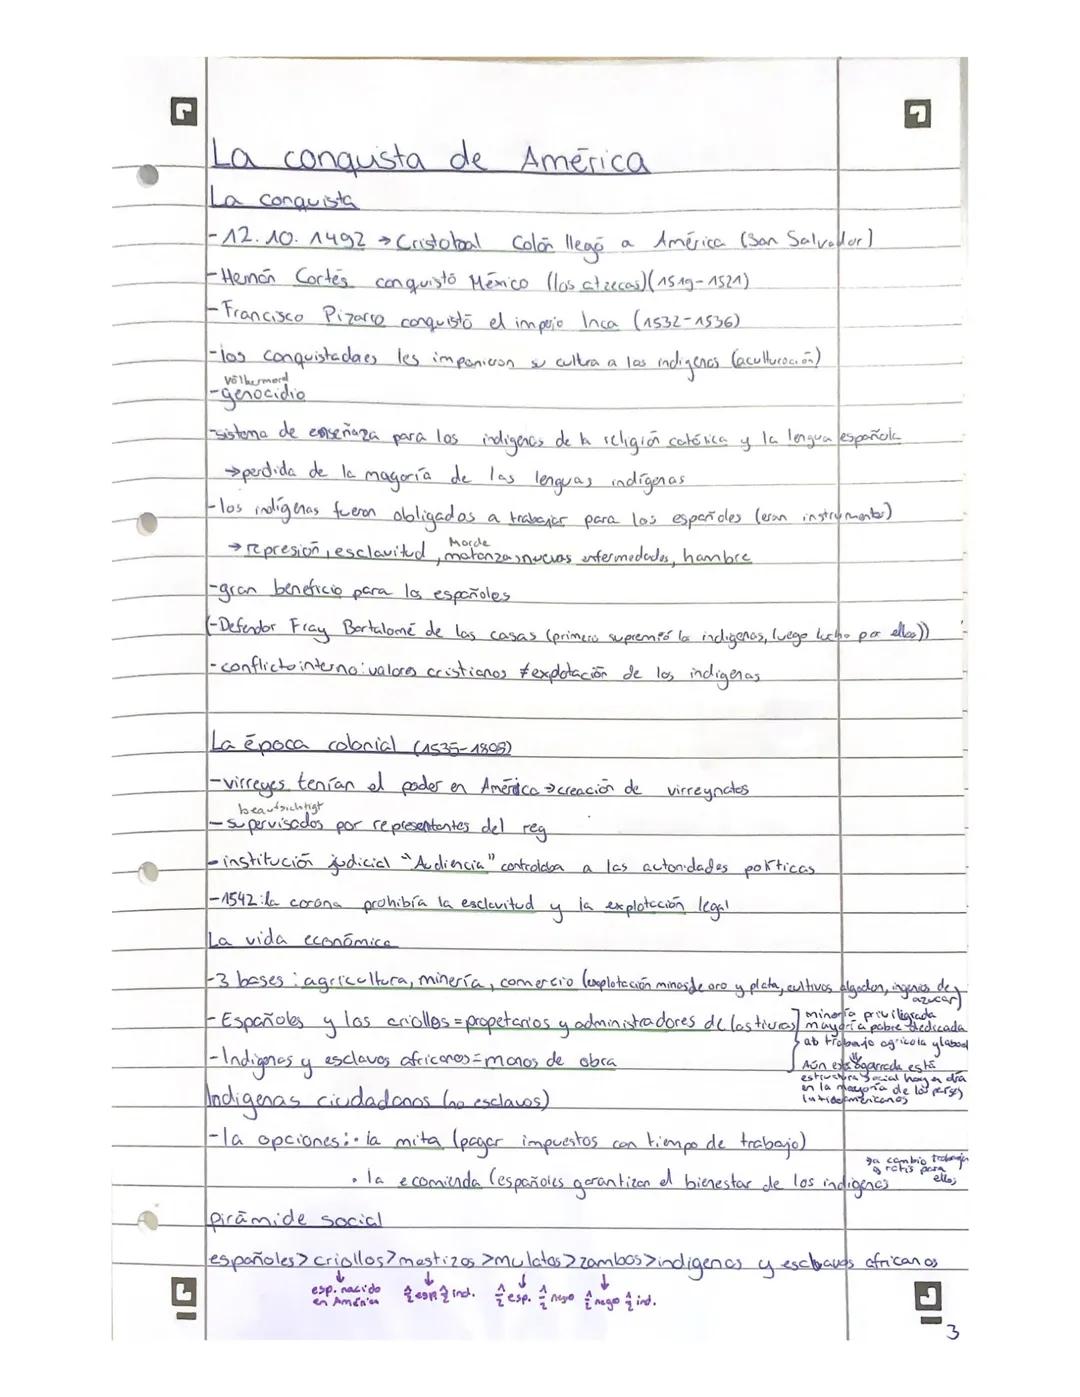 La conquista de América
La conquista
-12.10.1492 → Cristobal Colón llegó a América (San Salvador)
-Hernán Cortés conquistó México (los atzecas)(1519-1521)
-Francisco Pizarro conquistó el imperio Inca (1532-1536)
-los conquistadores les impanieron su cultura a los indígenas (aculturación)
Völkermord
-genocidio
-sistema de enseñaza para los indigenas de la religión católica y la lengua española
→perdida de la mayoría de las lenguas indígenas
-los indígenas fueron obligados a trabajar para los españoles (eran instrumentos)
Morde
→represión, esclavitud, matanzas, nuevas enfermedades, hambre
-gran beneficio para los españoles
(-Defendor Fray Bartalomé de las casas (primero supremió los indigenas, luego lucho por ellos))
-conflicto interno: valores cristianos ≠ explotación de los indigenas
La época colonial (1535-1805)
-virreyes tenían el poder en América → creación de virreynatos
beaufsichtigt
-supervisados por representantes del rey
-institución judicial "Audiencia" controlaba a las autoridades políticas
-1542: la corona prohibía la esclavitud y la explotación legal
La vida económica
-3 bases: agricultura, minería, comercio (explotación minas de oro y plata, cultivos algodon, ingenios de azucar)
-Españoles y los criollos = propetarios y administradores de las tierras
-Indigenas y esclavos africanos = manos de obra
minoría priviligrada
mayoría pobre dedicada
ab trabajo agrícola y labor
Aún esta está
estructura social hoy en dia
en la mayoría de los países
latinoamericanos
Indigenas ciudadanos (no esclavos)
-la opciones: • la mita (pagar impuestos con tiempo de trabajo)
• la ecomienda (españoles garantizan el bienestar de los indigenas
→a cambio trabajan
gratis para
ellos
pirámide social
españoles > criollos > mestizos > mulatos > zambos > indigenas y esclavos africanos
↓ esp. nacido en América
↓ ½ esp. ½ ind.
↓ ½ esp. ½ negro
↓ ½ nego ½ ind.
3